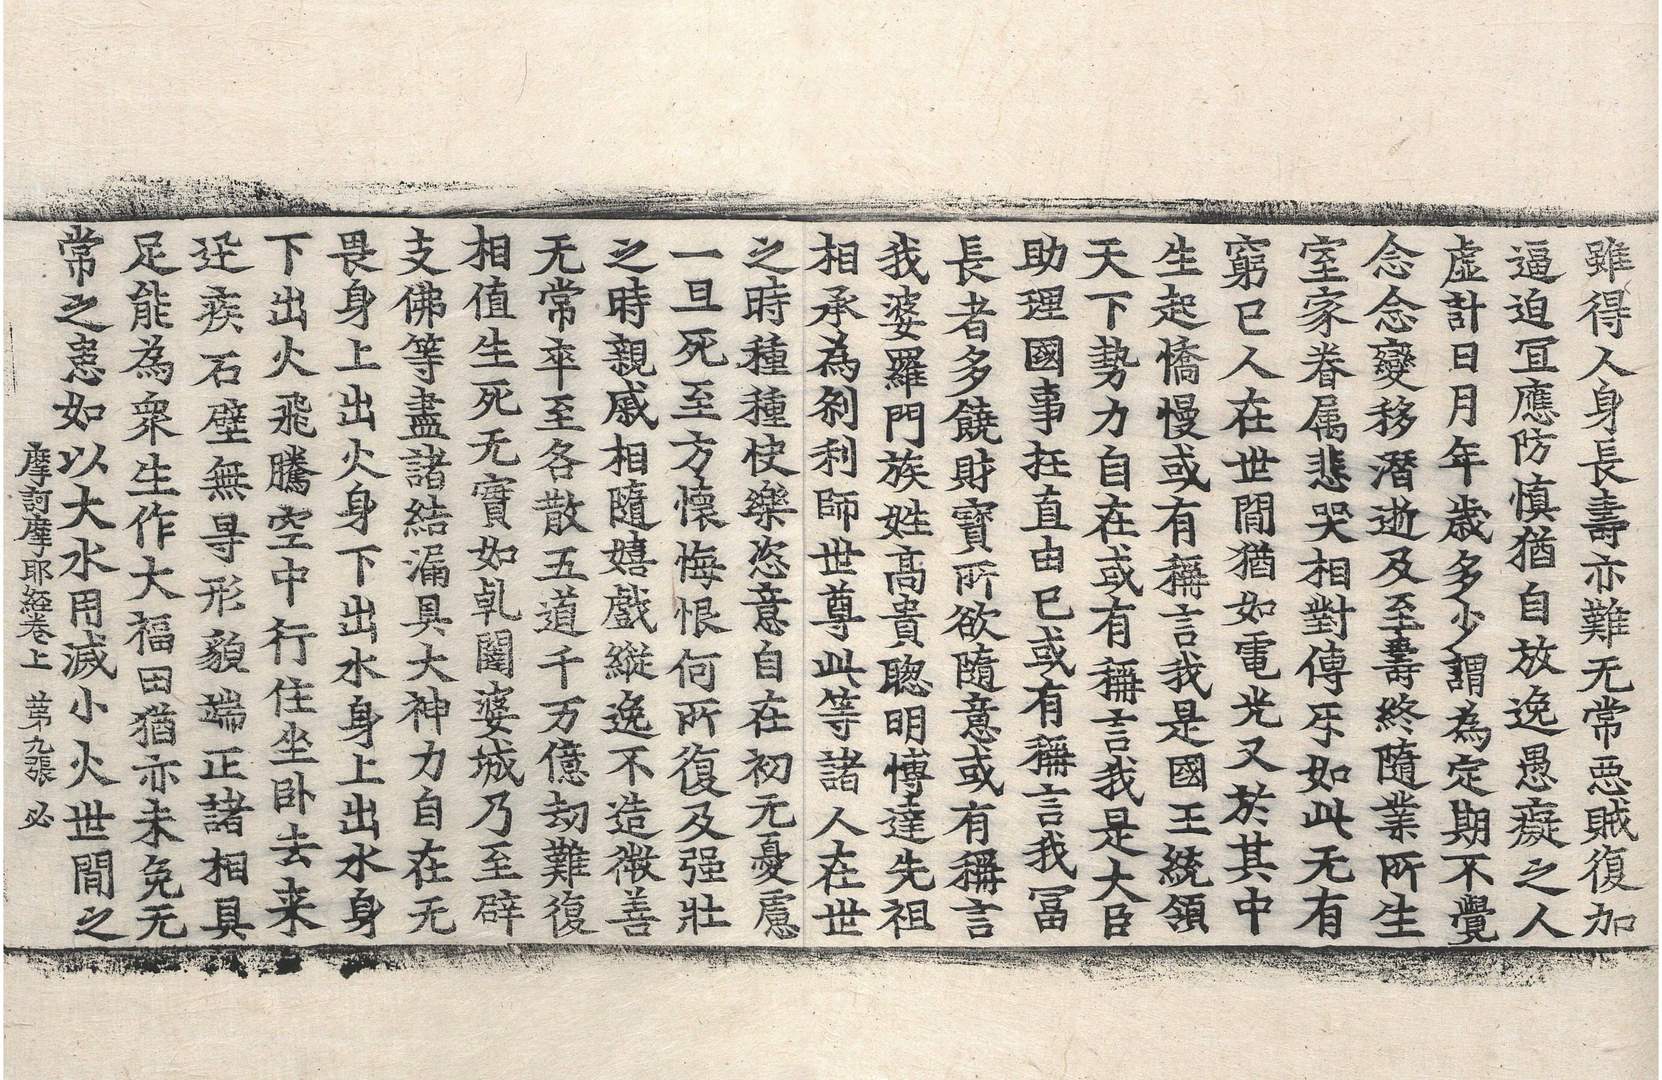 雖得人身長壽亦難无常惡賊復加
逼迫冝應防慎猶自放逸愚癡之人
虛計日月年歲多少謂為定期不覺
念念變移潛逝及至壽終隨業所生
室家眷属悲哭相對傳乎如此无有
窮已人在世閒猶如電光又於其中
生起憍慢或有稱言我是國王統領
天下勢力自在或有稱言我是大臣
助理國事抂直由已或有稱言我冨
長者多饒財寶所欲隨意或有稱言
我婆羅門族姓高貴聰明博達先祖
相承為刹利師世尊此等諸人在世
之時種種快樂恣意自在初无憂慮
一旦死至方懷悔恨何所復及强壯
之時親戚相隨嬉戲縱逸不造微善
无常卒至各散五道千万億劫難復
相值生死无實如乹闥婆城乃至辟
支佛等盡諸結漏具大神力自在无
畏身上出火身下出水身上出水身
下出火飛騰空中行住坐卧去来
迸疾石壁無㝵形貌端正諸相具
足能為衆生作大福田猶亦未免无
常之患如以大水用滅小火世閒之
摩訶摩耶經卷上 苐九張 必